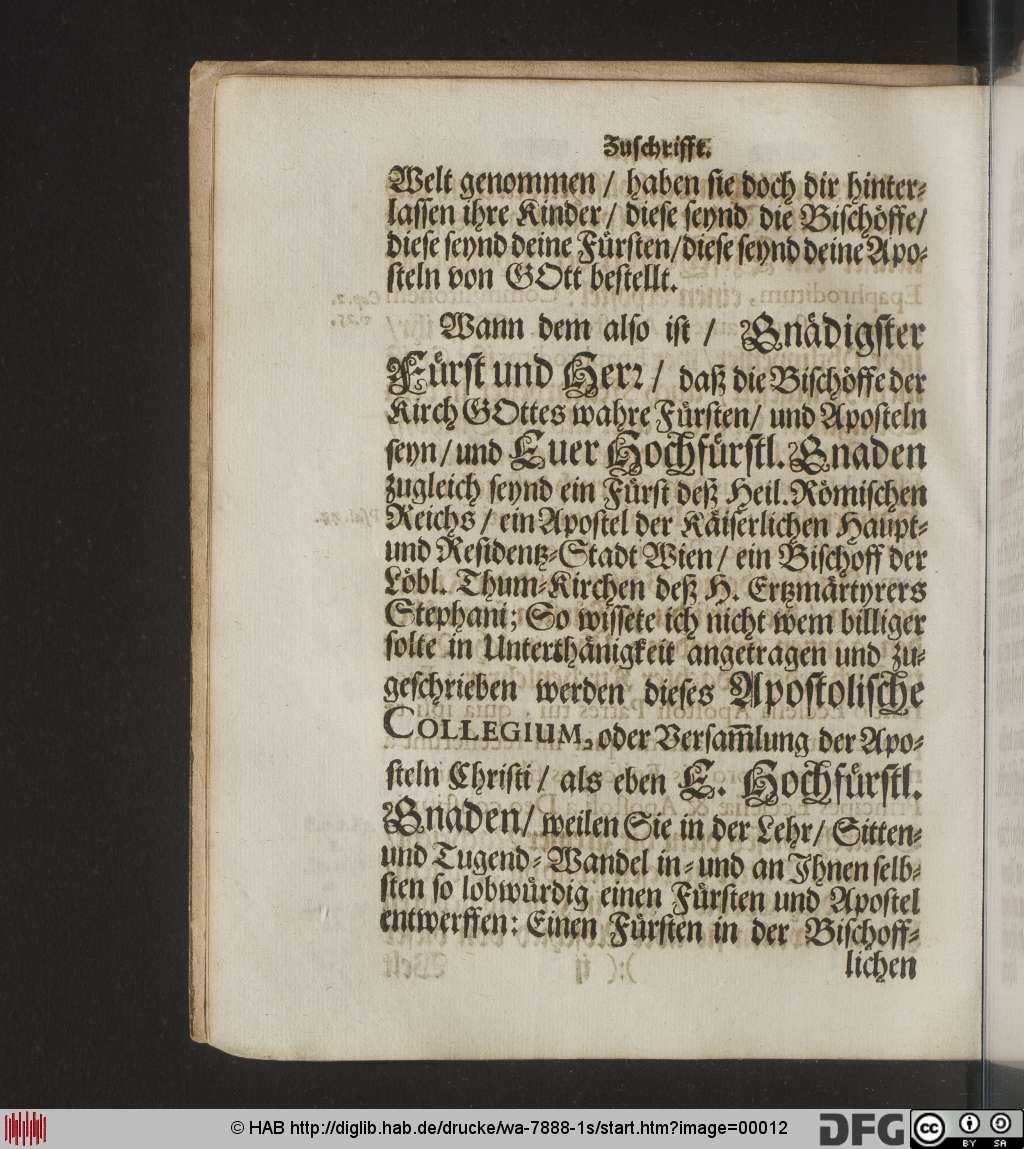 Zuschrifft.
Welt genommen / haben sie doch dir hinter-
lassen ihre Kinder / diese seynd die Bischöffe/
diese seynd deine Fürsten/diese seynd deine Apo-
steln von GOtt bestellt.
Wann dem also ist / Gnädigster
Fürst und Herr / daß die Bischöffe der
Kirch GOttes wahre Fürsten/ und Aposteln
seyn/und Euer Hochfürstl. Gnaden
zugleich seynd ein Fürst deß Heil. Römischen
Reichs / ein Apostel der Käiserlichen Haupt-
und Residentz-Stadt Wien / ein Bischoff der
Löbl. Thum-Kirchen deß H. Ertzmärtyrers
Stephani; So wissete ich nicht wem billiger
solte in Unterthänigkeit angetragen und zu-
geschrieben werden dieses Apostolische
COLLEGIUM, oder Versam̅lung der Apo-
steln Christi / als eben E. Hochfürstl.
Gnaden/ weilen Sie in der Lehr/ Sitten-
und Tugend-Wandel in-und an Ihnen selb-
sten so lobwürdig einen Fürsten und Apostel
entwerffen: Einen Fürsten in der Bischoff-
lichen
© HAB http://diglib.hab.de/drucke/wa-7888-1s/start.htm?image=00012
DFG
cc BY SA